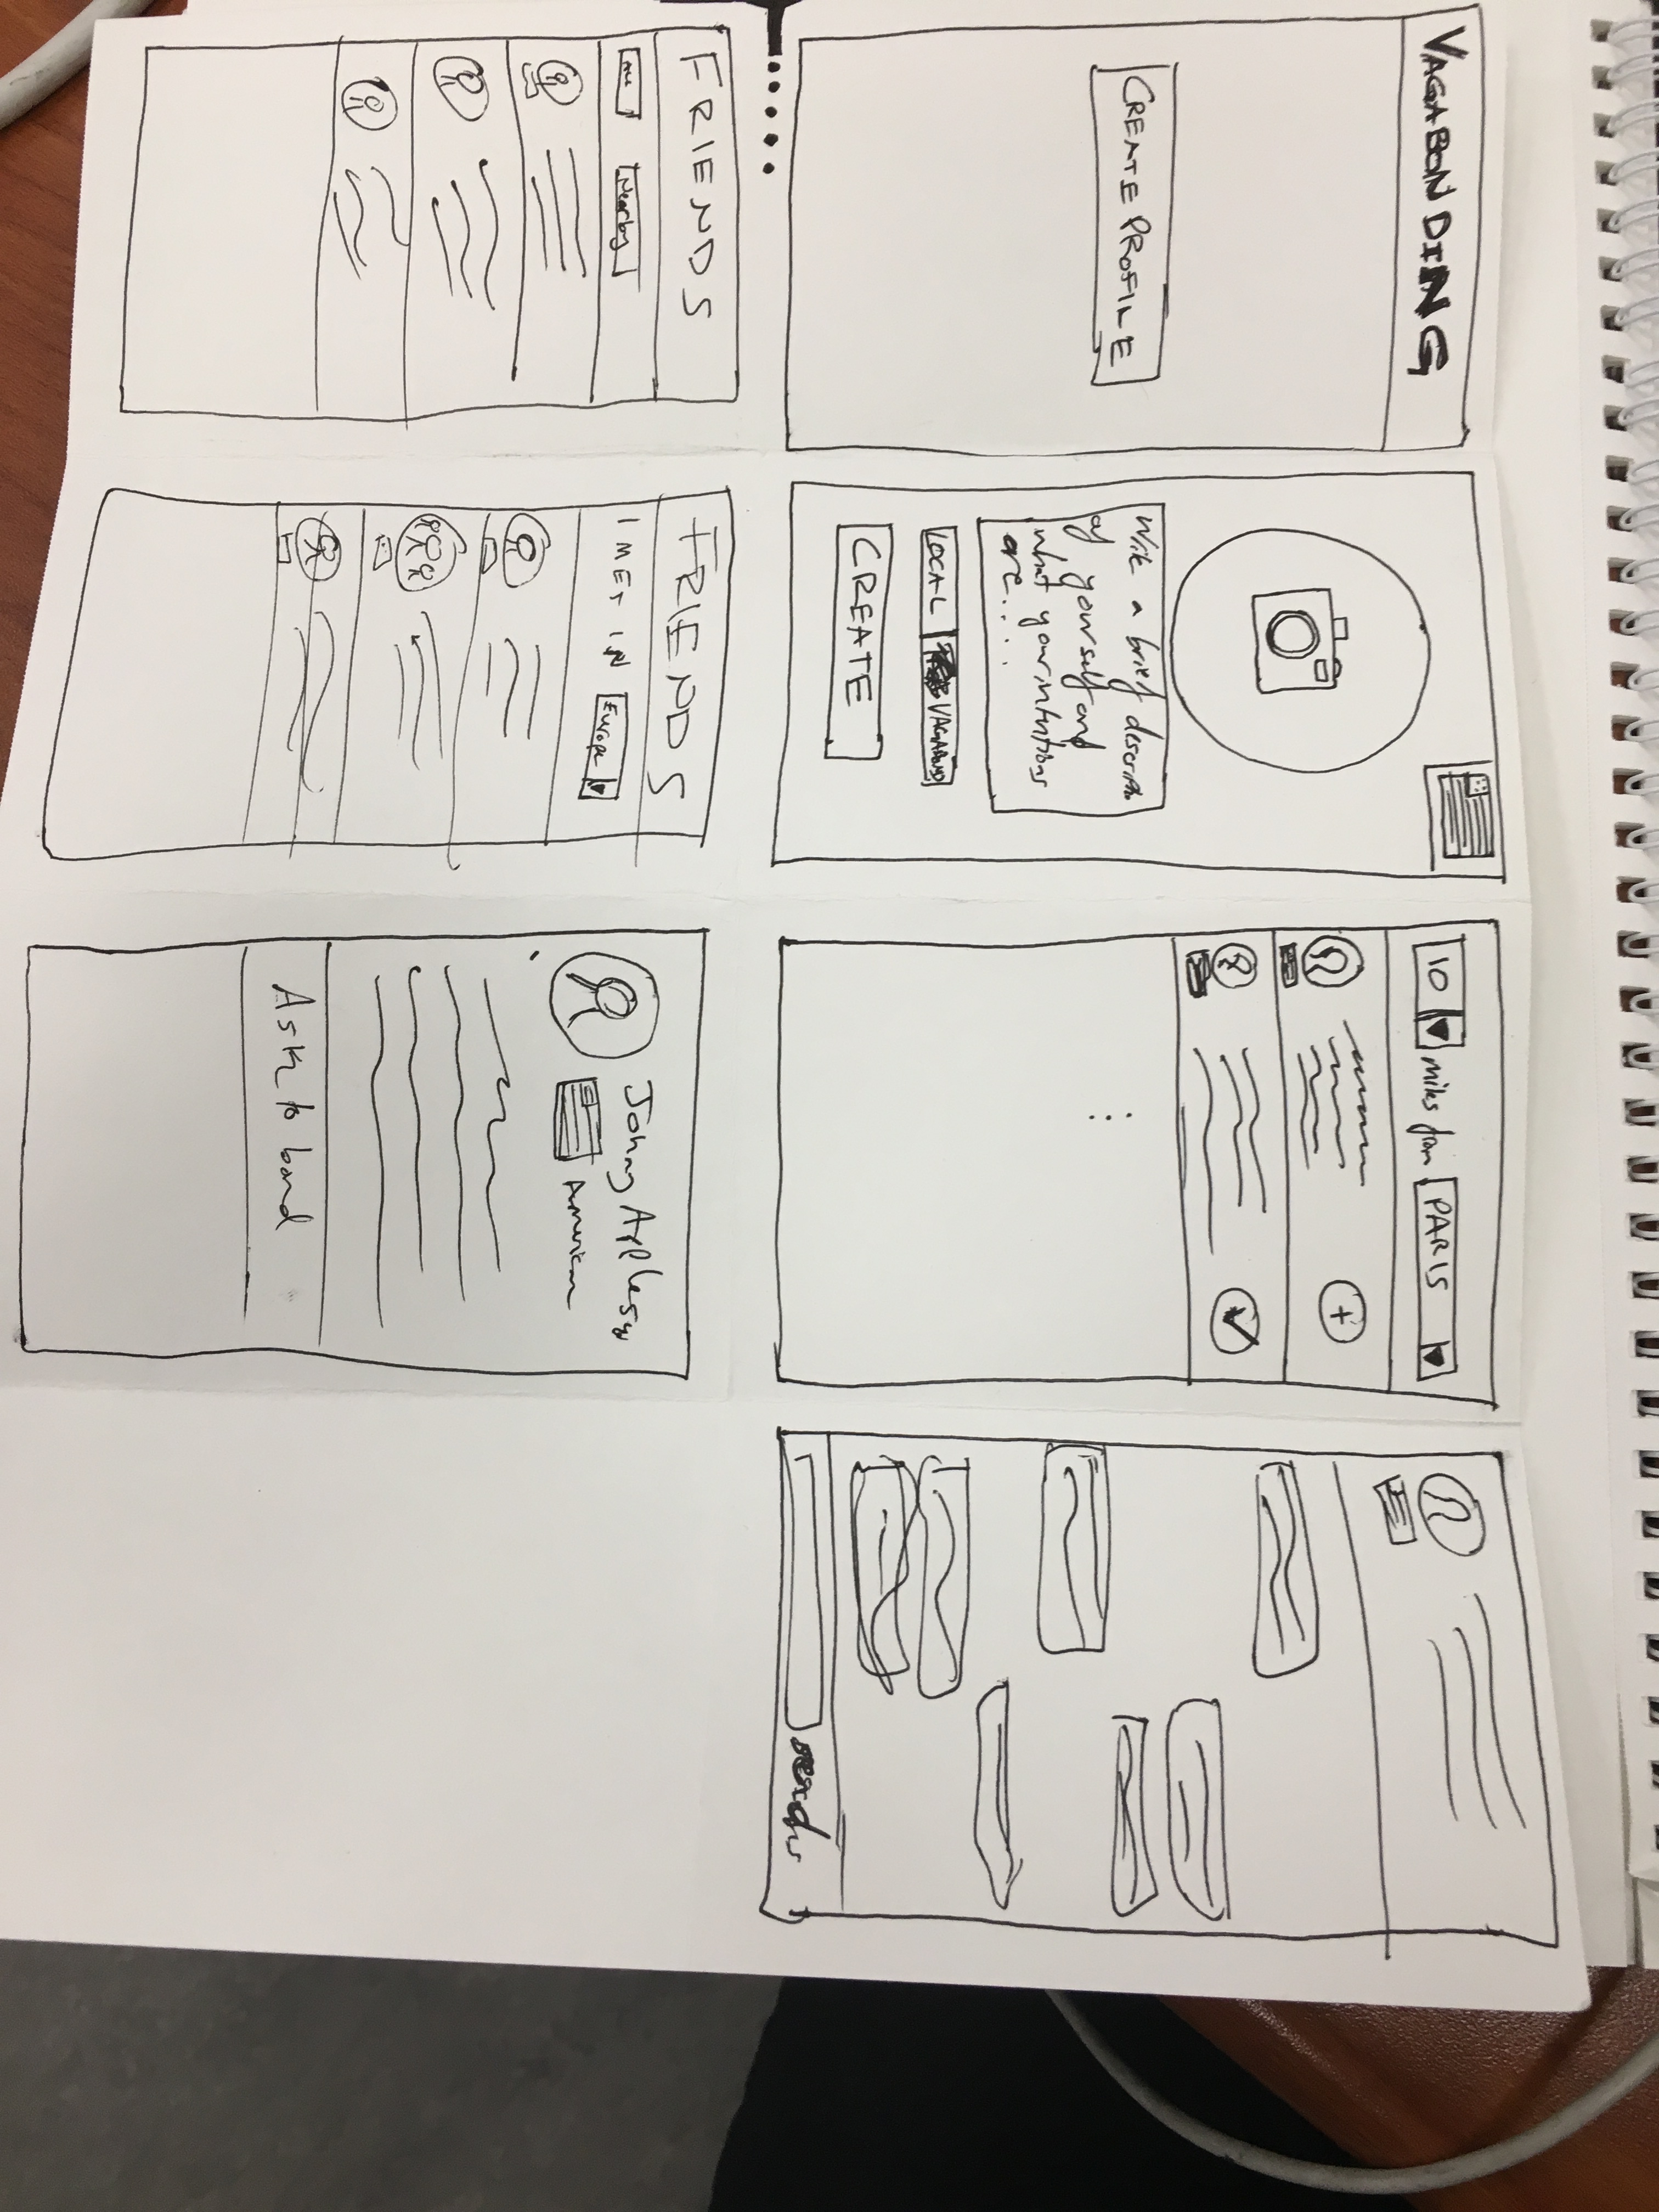 VAGABONDING
CREATE PROFILE
Write a brief describ
of yourself and
what your intentions
are....
LOCAL VAGABOND
CREATE
10 miles from PARIS
send
FRIENDS
ALL Nearby
FRIENDS
I MET IN Europe
Johny
American
Ask to bond